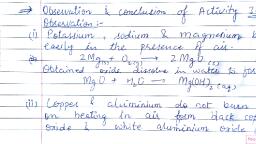 → Observation & conclusion of Activity
Observation :-
(i) Potassium, sodium & magnesium
easily in the presence of air.
(i) 2Mg(s) + O2(g) → 2MgO
Obtained oxide dissolve in water to
MgO + H2O → Mg(OH)2(aq)
(ii) Copper & aluminium do not burn
on heating in air form dark
oxide & white aluminium oxide